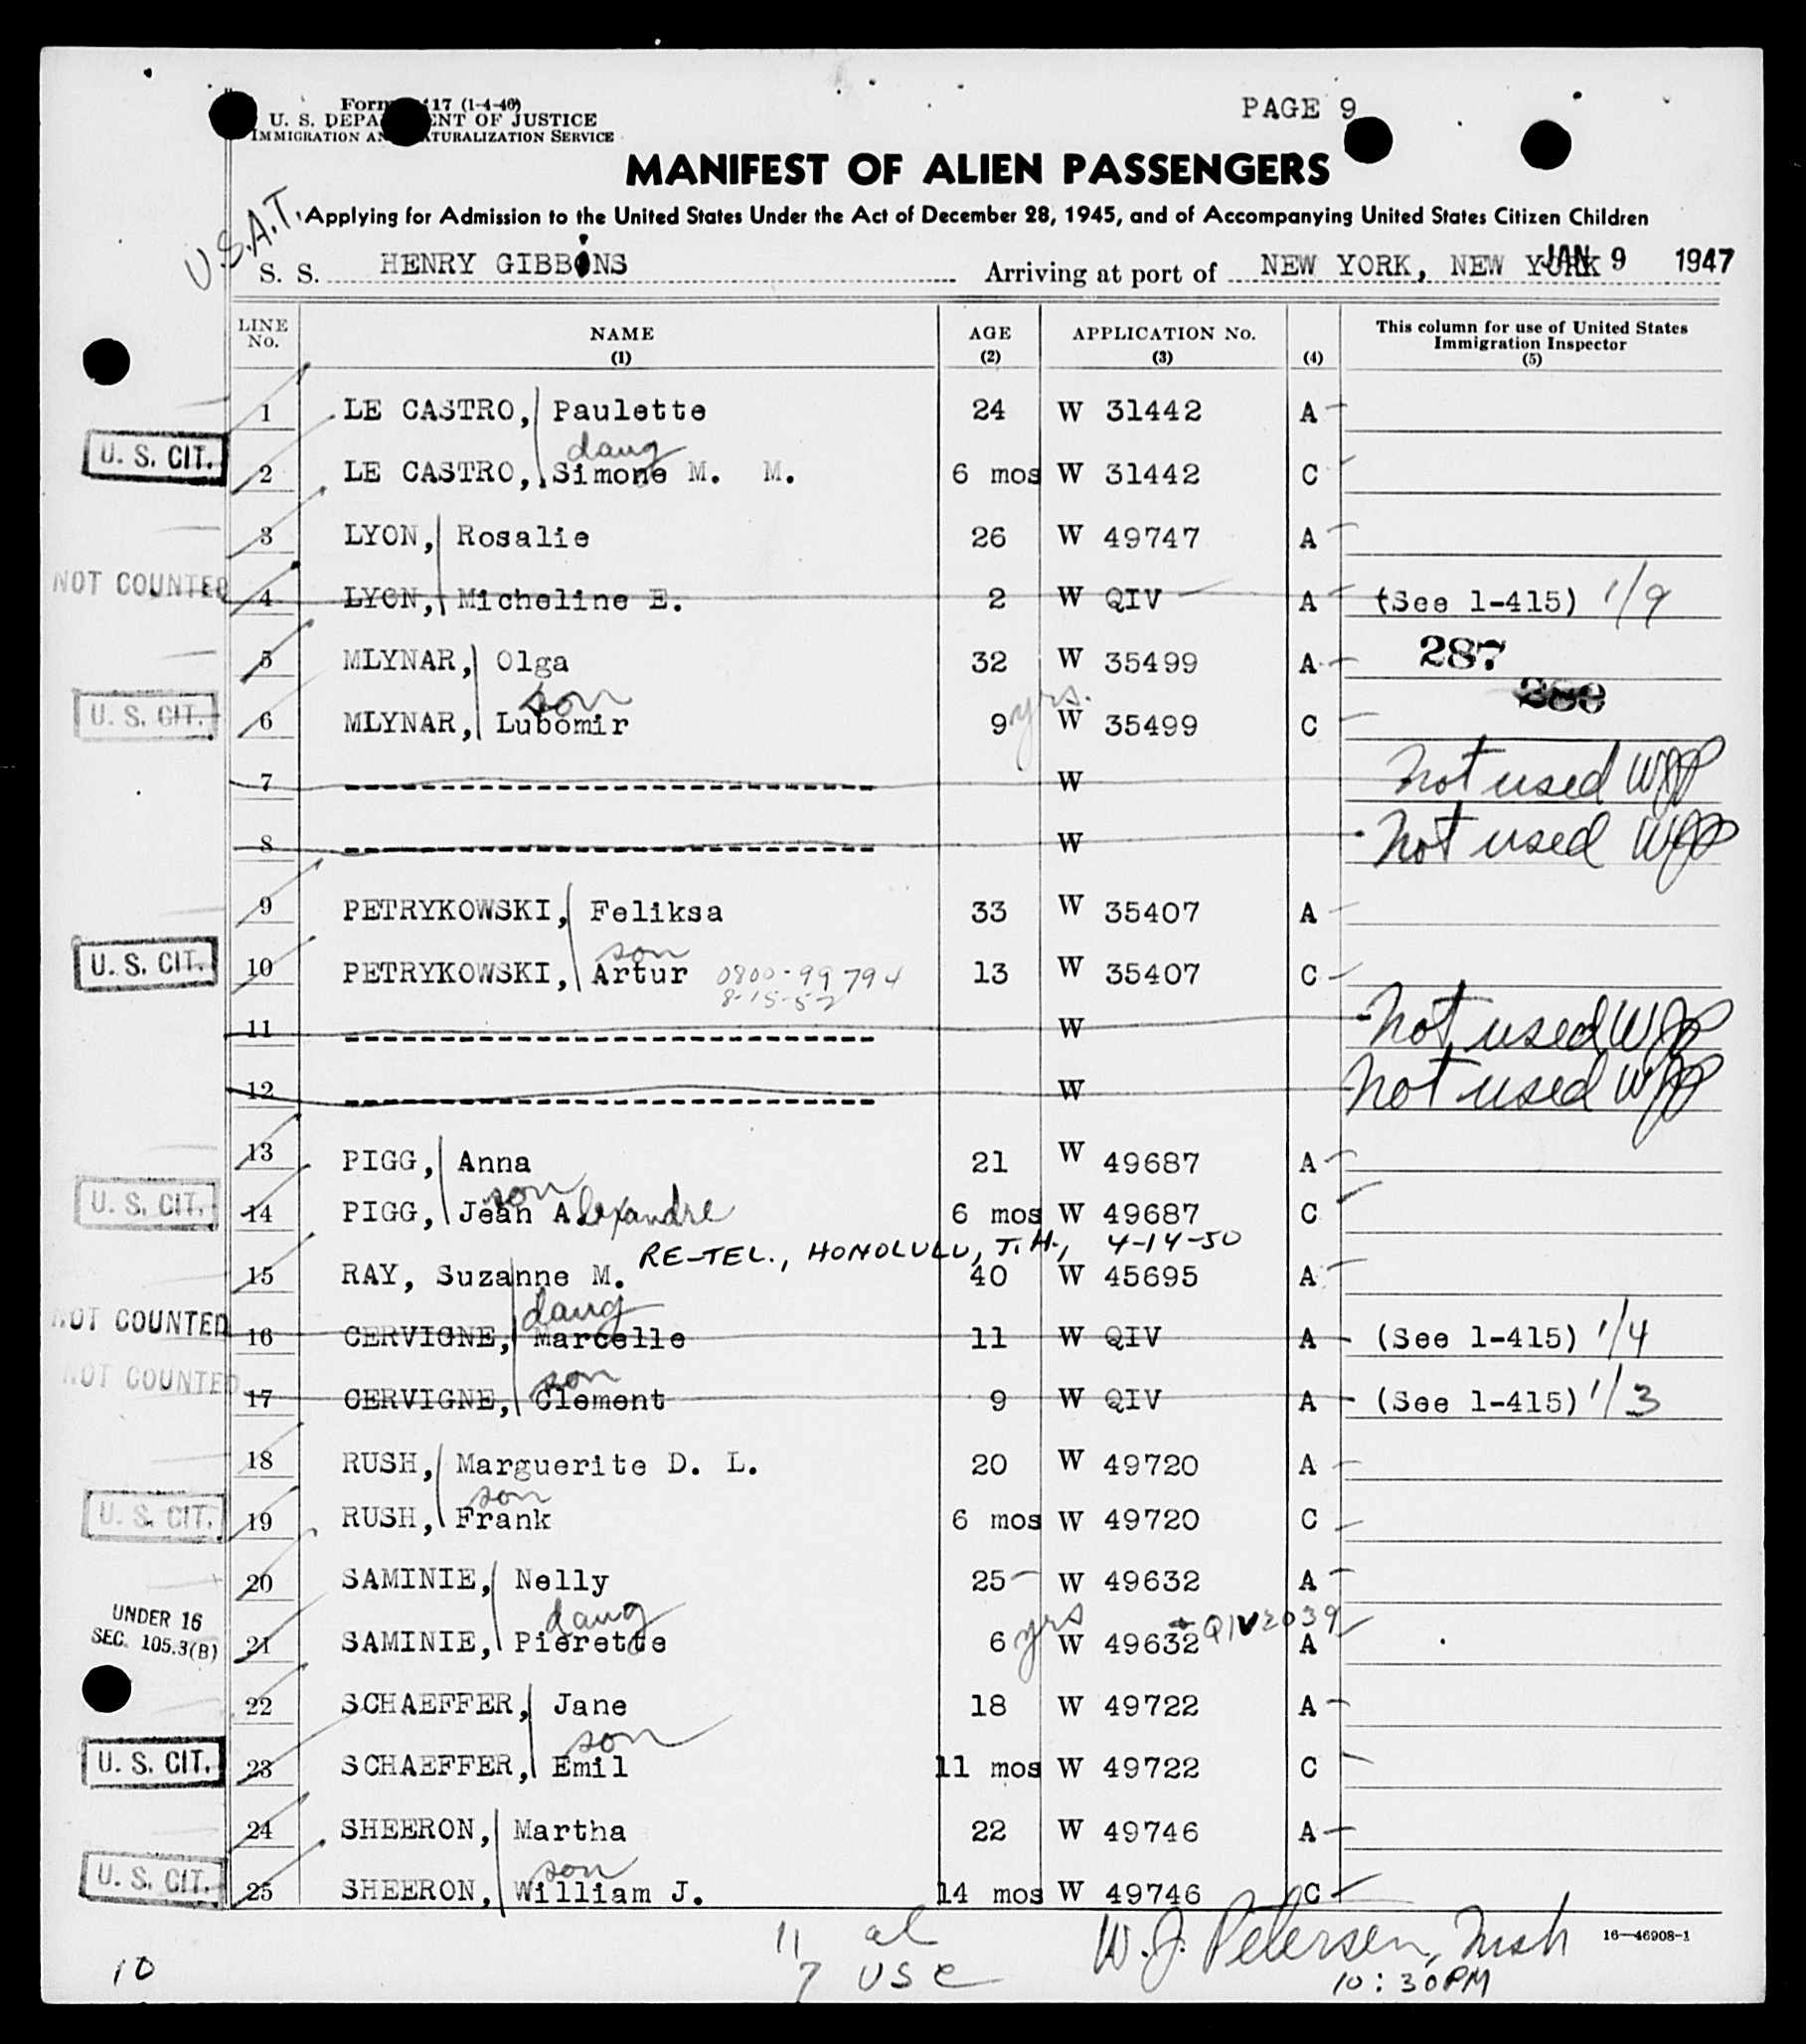 Form 17 (1-4-46)
U. S. DEPARTMENT OF JUSTICE
IMMIGRATION AND NATURALIZATION SERVICE
PAGE 9
MANIFEST OF ALIEN PASSENGERS
Applying for Admission to the United States Under the Act of December 28, 1945, and of Accompanying United States Citizen Children
U.S.A.T.
S. S. HENRY GIBBINS Arriving at port of NEW YORK, NEW YORK JAN 9 1947
LINE No. NAME (1) AGE (2) APPLICATION No. (3) (4) This column for use of United States Immigration Inspector (5)
1 LE CASTRO, Paulette 24 W 31442 A
daug
U. S. CIT. 2 LE CASTRO, Simone M. M. 6 mos W 31442 C
3 LYON, Rosalie 26 W 49747 A
NOT COUNTED 4 LYON, Micheline E. 2 W QIV A (See 1-415) 1/9
5 MLYNAR, Olga 32 W 35499 A 287
son
U. S. CIT. 6 MLYNAR, Lubomir 9 yrs. W 35499 C
7 W not used WJP
8 W not used WJP
9 PETRYKOWSKI, Feliksa 33 W 35407 A
son
U. S. CIT. 10 PETRYKOWSKI, Artur 0800-99794 13 W 35407 C
8-15-52
11 W not used WJP
12 W not used WJP
13 PIGG, Anna 21 W 49687 A
son
U. S. CIT. 14 PIGG, Jean Alexandre 6 mos W 49687 C
RE-TEL., HONOLULU, T.H., 4-14-50
15 RAY, Suzanne M. 40 W 45695 A
daug
NOT COUNTED 16 CERVIGNE, Marcelle 11 W QIV A (See 1-415) 1/4
son
NOT COUNTED 17 CERVIGNE, Clement 9 W QIV A (See 1-415) 1/3
18 RUSH, Marguerite D. L. 20 W 49720 A
son
U. S. CIT. 19 RUSH, Frank 6 mos W 49720 C
20 SAMINIE, Nelly 25 W 49632 A
daug
UNDER 16
SEC. 105.3(B) 21 SAMINIE, Pierette 6 yrs W 49632 QIV 2039 A
22 SCHAEFFER, Jane 18 W 49722 A
son
U. S. CIT. 23 SCHAEFFER, Emil 11 mos W 49722 C
24 SHEERON, Martha 22 W 49746 A
son
U. S. CIT. 25 SHEERON, William J. 14 mos W 49746 C
11 al
7 USC
W. J. Petersen,
16—46908-1
10
10:30PM